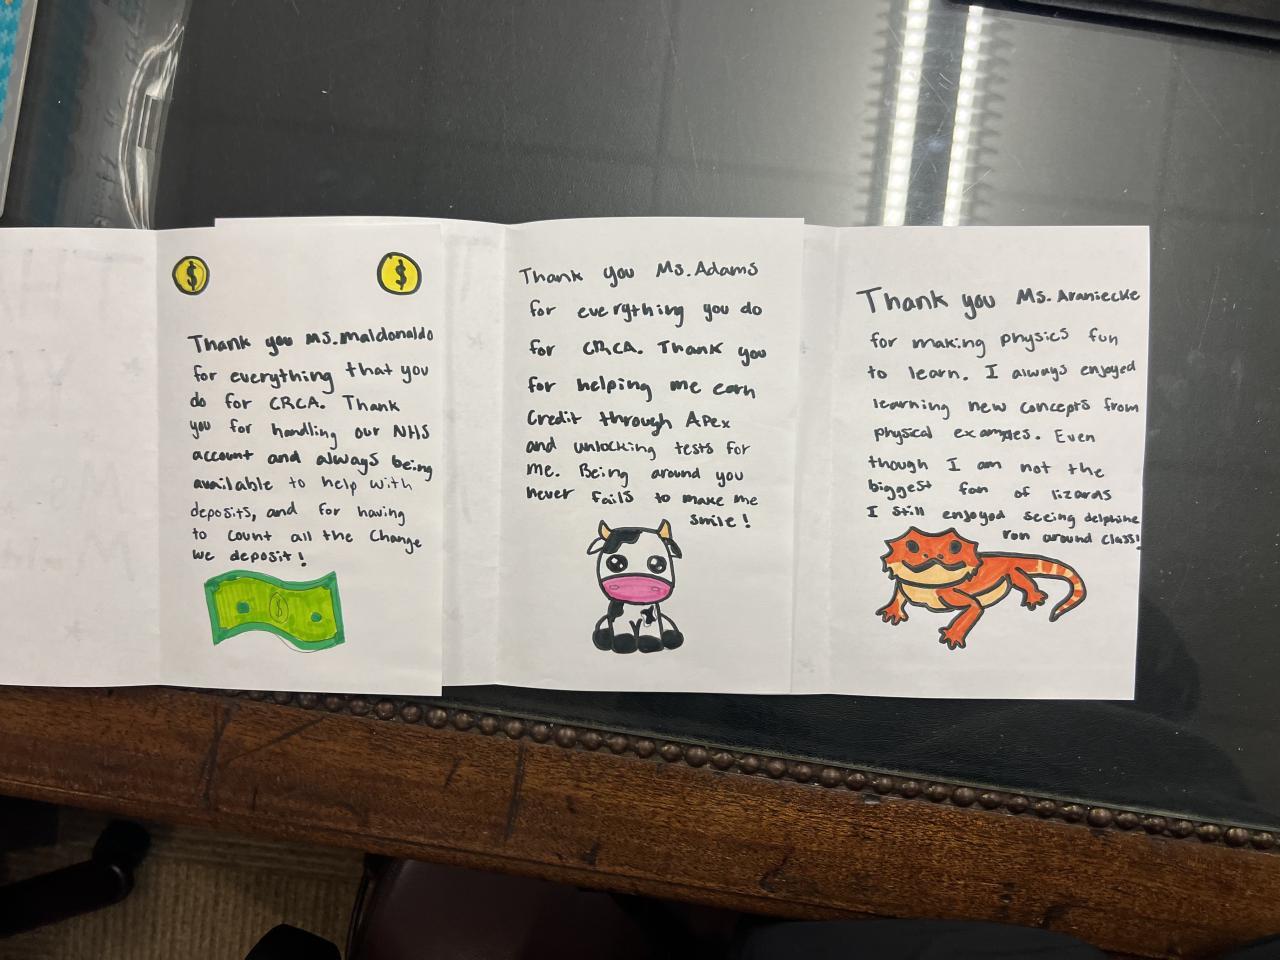 $
$
Thank you Ms. Maldonaldo
for everything that you
do for CRCA. Thank
you for handling our NHS
account and always being
available to help with
deposits, and for having
to count all the change
we deposit!
$
Thank you Ms. Adams
for everything you do
for CRCA. Thank you
for helping me earn
credit through Apex
and unlocking tests for
me. Being around you
never fails to make me
smile!
Thank you Ms. Araniecke
for making physics fun
to learn. I always enjoyed
learning new concepts from
physical examples. Even
though I am not the
biggest fan of lizards
I still enjoyed seeing delphine
run around class!